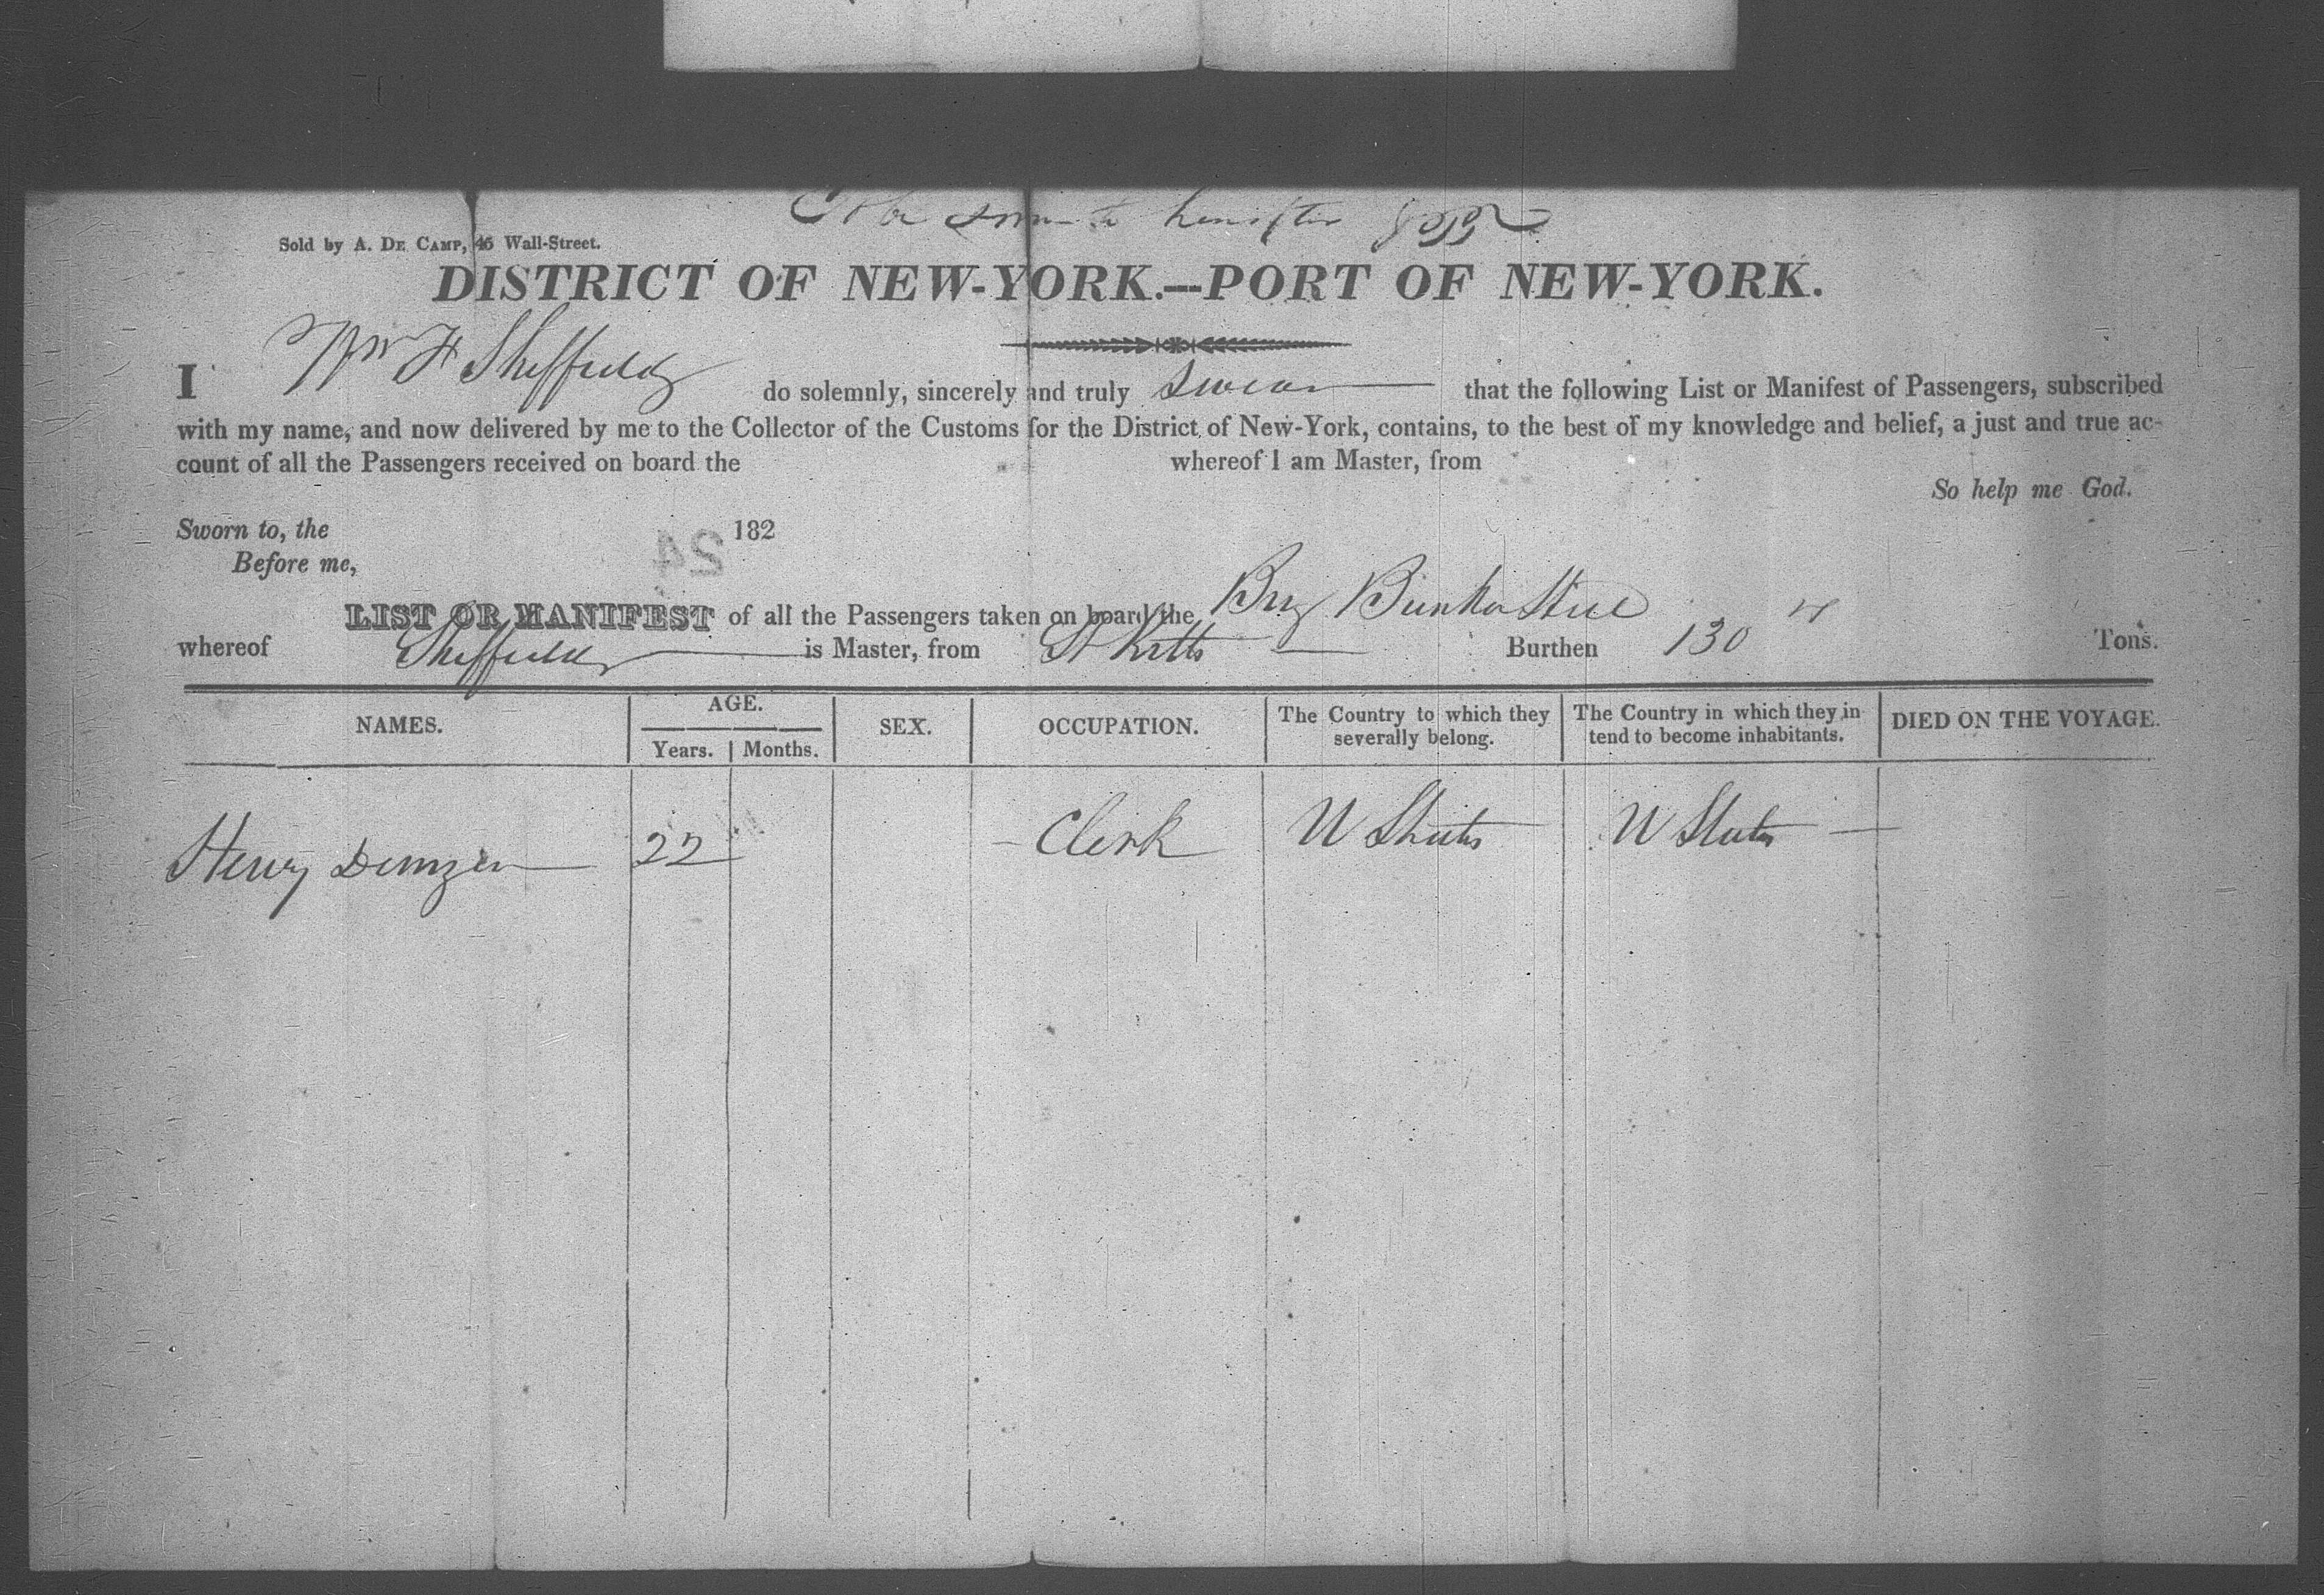 To be sworn to hereafter
Sold by A. De Camp, 46 Wall-Street.
DISTRICT OF NEW-YORK.—PORT OF NEW-YORK.
I Wm H Sheffield do solemnly, sincerely and truly Swear that the following List or Manifest of Passengers, subscribed
with my name, and now delivered by me to the Collector of the Customs for the District of New-York, contains, to the best of my knowledge and belief, a just and true ac-
count of all the Passengers received on board the whereof I am Master, from
So help me God.
Sworn to, the 182
24
Before me,
LIST OR MANIFEST of all the Passengers taken on board the Brig Bunker Hill
whereof Sheffield is Master, from St Kitts Burthen 130 Tons.
NAMES. AGE. SEX. OCCUPATION. The Country to which they severally belong. The Country in which they intend to become inhabitants. DIED ON THE VOYAGE.
Years. Months.
Henry 22 Clerk U States U States